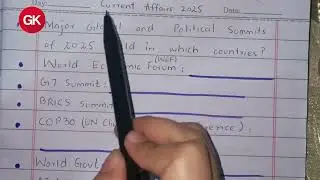 GK
Day: Current Affairs 2025 Date:
Major and Political Summits
of 2025 in which countries?
World Economic Forum: (WEF)
G7 Summit:
BRICS Summ
COP30 (UN Cli erence) :
World Govt